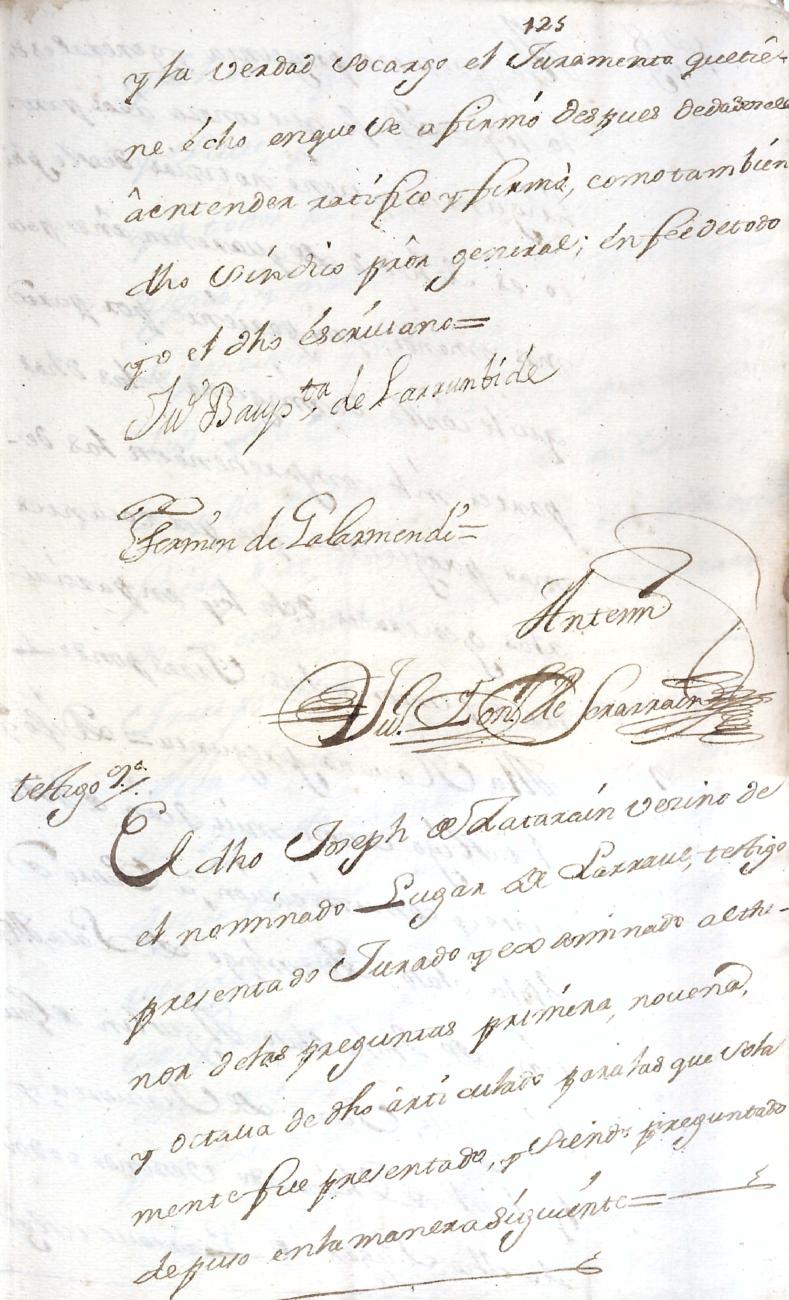 125
y la verdad socargo el Juramento quetie-
ne êcho enque se afirmó despues dedadosele
âentender ratifico y firmò, comotambien
dho Síndico prôr general; enfeé detodo
yo el dho éscriuano=
Juº Baupta de Larruntide
Fermin de Galarmendi=
Antemi
Juº
testigo 9º
El dho Joseph de Zatarain vezino de
el nominado Lugar de Larraul, testigo
presentado Jurado y examinado althe-
nor delas preguntas primera, novena,
y octaua de dho ârticulado paralas que sola
mente fue presentado, y Siendo preguntado
depuso enla manera Siguiente=